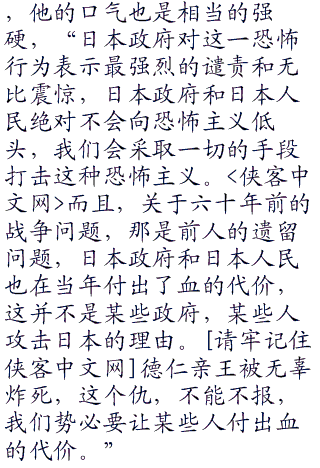 ，他的口气也是相当的强
硬，“日本政府对这一恐怖
行为表示最强烈的谴责和无
比震惊，日本政府和日本人
民绝对不会向恐怖主义低
头，我们会采取一切的手段
打击这种恐怖主义。<侠客中
文网>而且，关于六十年前的
战争问题，那是前人的遗留
问题，日本政府和日本人民
也在当年付出了血的代价，
这并不是某些政府，某些人
攻击日本的理由。[请牢记住
侠客中文网]德仁亲王被无辜
炸死，这个仇，不能不报，
我们势必要让某些人付出血
的代价。”